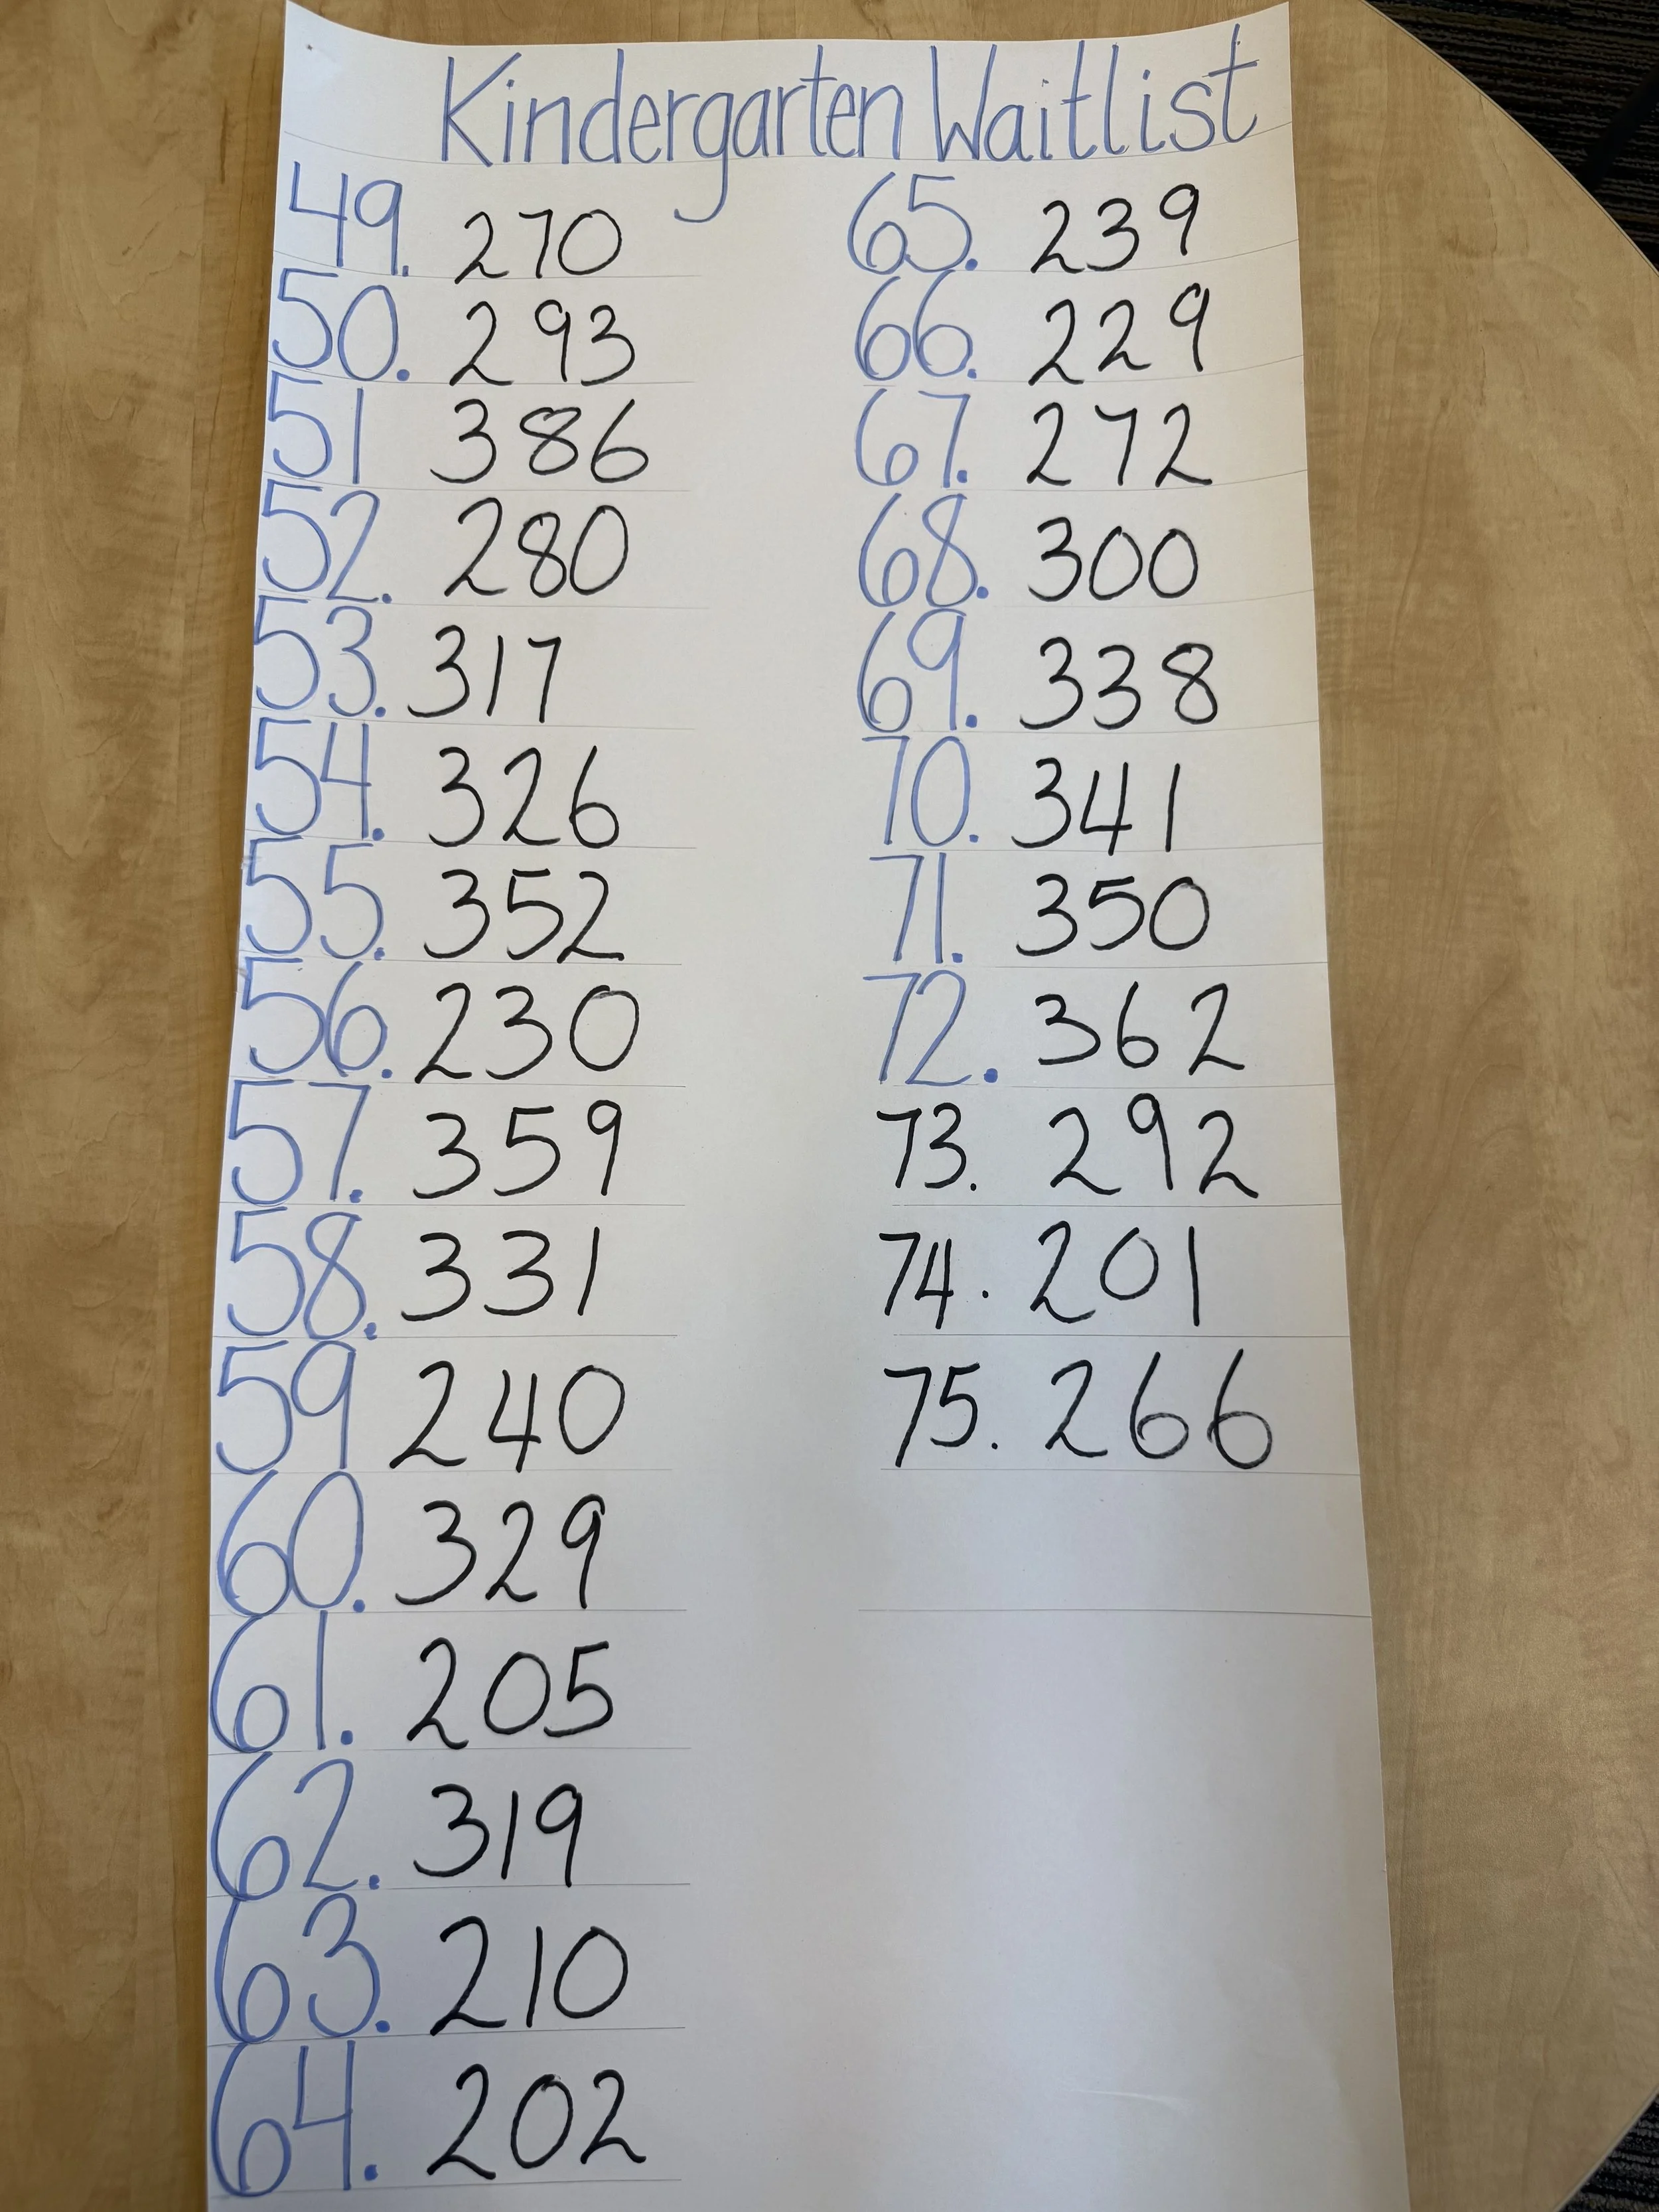 Kindergarten Waitlist
49. 270
50. 293
51 386
52. 280
53. 317
54. 326
55. 352
56. 230
57. 359
58. 331
59 240
60. 329
61. 205
62. 319
63. 210
64. 202
65. 239
66. 229
67. 272
68. 300
69. 338
70. 341
71. 350
72. 362
73. 292
74. 201
75. 266